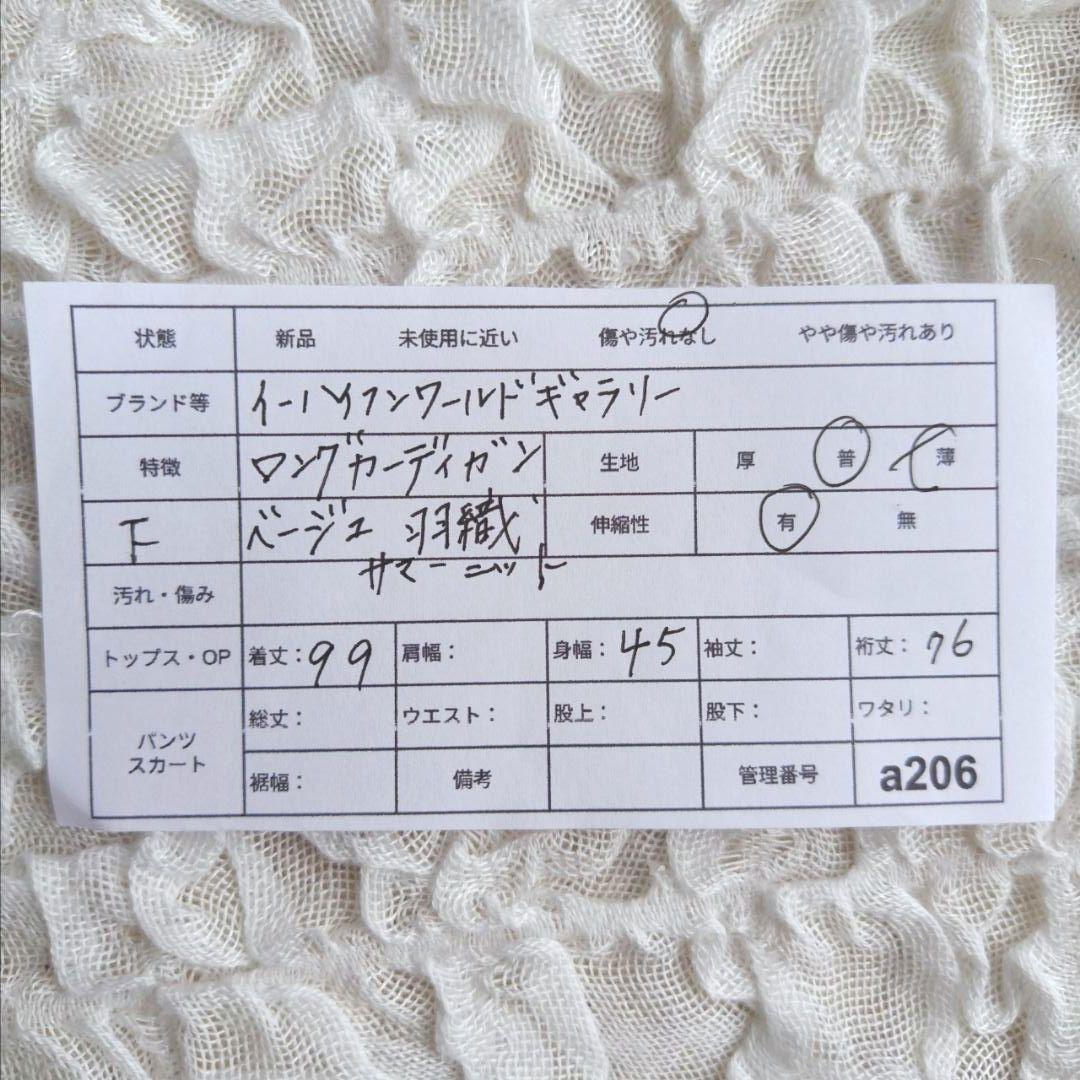 状態 新品 未使用に近い 傷や汚れなし やや傷や汚れあり
ブランド等 イーハイフンワールドギャラリー
特徴 ロングカーディガン 生地 厚 普 薄
F ベージュ 羽織 伸縮性 有 無
サマーニット
汚れ・傷み
トップス・OP 着丈：99 肩幅： 身幅：45 袖丈： 裄丈：76
パンツ スカート 総丈： ウエスト： 股上： 股下： ワタリ：
裾幅： 備考 管理番号 a206